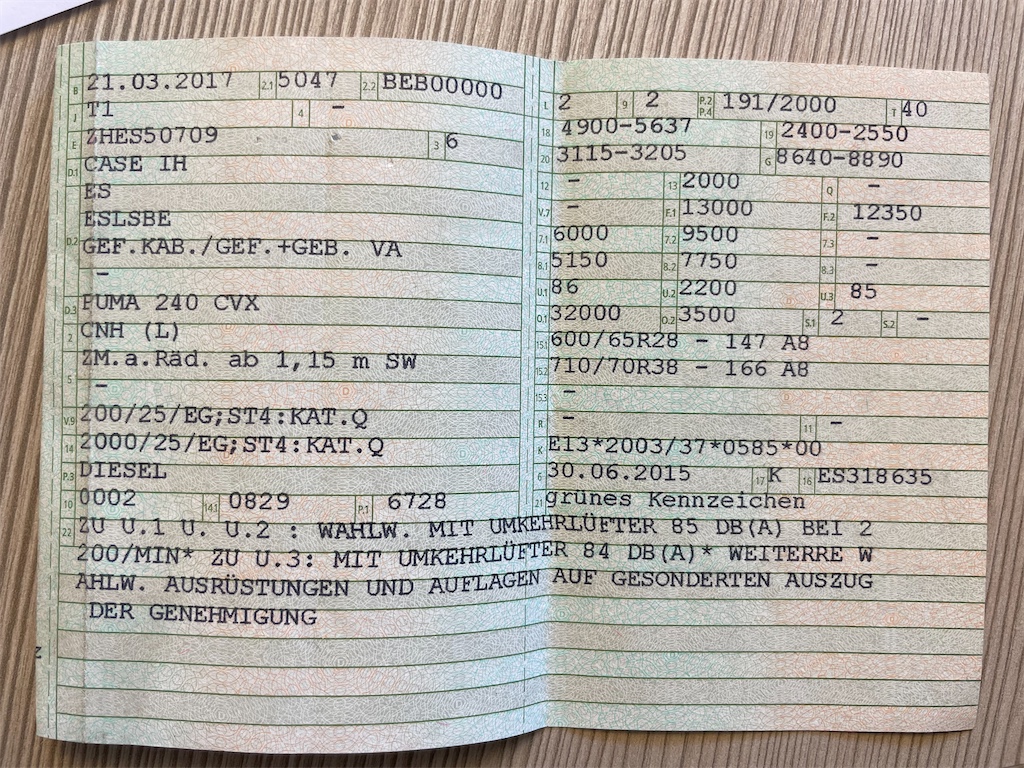 B 21.03.2017 2.1 5047 2.2 BEB00000
J T1 4 –
E ZHES50709 3 6
D.1 CASE IH
ES
ESLSBE
D.2 GEF.KAB./GEF.+GEB. VA
–
D.3 PUMA 240 CVX
2 CNH (L)
ZM.a.Räd. ab 1,15 m SW
5 –
V.9 200/25/EG;ST4:KAT.Q
14 2000/25/EG;ST4:KAT.Q
P.3 DIESEL
10 0002 14.1 0829 P.1 6728
L 2 9 2 P.2 P.4 191/2000 T 40
18 4900-5637 19 2400-2550
20 3115-3205 G 8640-8890
12 – 13 2000 Q –
V.7 – F.1 13000 F.2 12350
7.1 6000 7.2 9500 7.3 –
8.1 5150 8.2 7750 8.3 –
U.1 86 U.2 2200 U.3 85
O.1 32000 O.2 3500 S.1 2 S.2 –
15.1 600/65R28 – 147 A8
15.2 710/70R38 – 166 A8
15.3 –
R – 11 –
K E13*2003/37*0585*00
6 30.06.2015 17 K 16 ES318635
21 grünes Kennzeichen
22 ZU U.1 U. U.2 : WAHLW. MIT UMKEHRLÜFTER 85 DB(A) BEI 2
200/MIN* ZU U.3: MIT UMKEHRLÜFTER 84 DB(A)* WEITERRE W
AHLW. AUSRÜSTUNGEN UND AUFLAGEN AUF GESONDERTEN AUSZUG
DER GENEHMIGUNG
Z